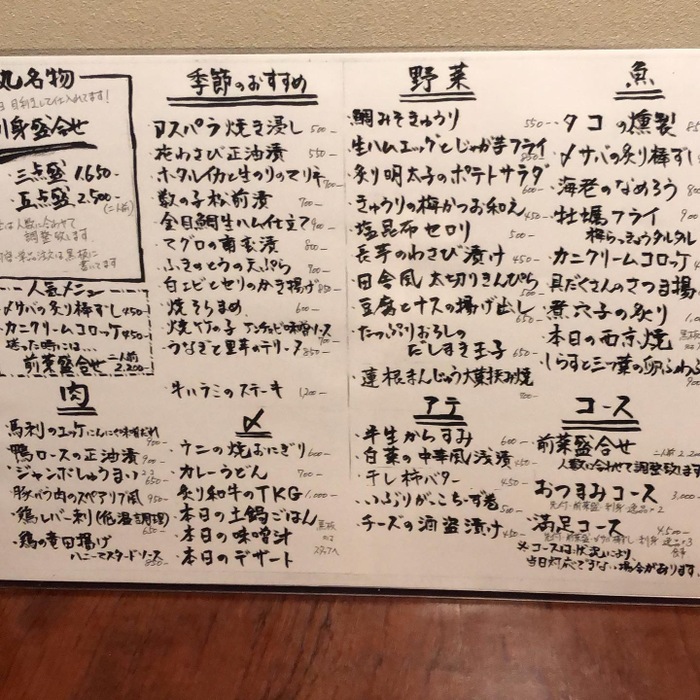 丸名物
目利きして仕入れてます!
刺身盛合せ
三点盛 1.650-
五点盛 2.500-
(二人前)
は人数に合わせて
調整致します
単品注文は黒板に
書いてます
人気メニュー
〆サバの炙り棒ずし 450-
カニクリームコロッケ 450-
迷った時には...
前菜盛合せ 二人前 2.200-
季節のおすすめ
アスパラ焼き浸し 500-
花わさび正油漬 550-
ホタルイカと生のりのマリネ 700-
数の子松前漬 700-
金目鯛生ハム仕立て 900-
てグロの南蛮漬 800-
ふきのとうの天ぷら 700-
白エビとセリのかき揚げ 850-
焼そらまめ 600-
焼竹の子 アンチョビ味噌ソース 700-
うなぎと里芋のテリーヌ 850-
牛ハラミのステーキ 1,200-
野菜
鯛みそきゅうり 550-
生ハムエッグとじゃが芋フライ 850-
炙り明太子のポテトサラダ 600-
きゅうりの梅かつお和え 450-
塩昆布セロリ 500-
長芋のわさび漬け 450-
田舎風 太切りきんぴら 500-
豆腐とナスの揚げ出し 650-
たっぷりおろしの
だしまき玉子 650-
蓮根まんじゅう大葉挟み焼 700-
魚
タコの燻製 85
〆サバの炙り棒ずし
海老のなめろう 90
牡蠣フライ 900
梅らっきょうタルタル
カニクリームコロッケ
具だくさんのさつま揚
煮穴子の炙り 1,0
本日の西京焼 黒板
しらすと三つ葉の卵ふわふ
肉
馬刺のユッケ にんにく味噌だれ 900-
鴨ロースの正油漬 900-
ジャンボしゅうまい 2コ 650-
豚バラ肉のスペアリブ風 950-
鶏レバー刺(低温調理) 650-
鶏の竜田揚げ
ハニーマスタードソース 850-
〆
ウニの焼おにぎり 600-
カレーうどん 700-
炙り和牛のTKG 1,000-
本日の土鍋ごはん 黒板
本日の味噌汁 or
本日のデザート スタッフへ
アテ
半生からすみ 600-
白菜の中華風浅漬 450-
干し柿バター 450-
いぶりがっこちーず巻 500-
チーズの酒盗漬け 450-
コース
前菜盛合せ 二人前 2.200
人数に合わせて調整致します
おつまみコース 3,000
先付・前菜盛・刺身・逸品×2
満足コース 4,500-
先付・前菜盛・〆サバ棒ずし・刺身・逸品×3
食事
※コースは状況により、
当日対応できない場合があります。